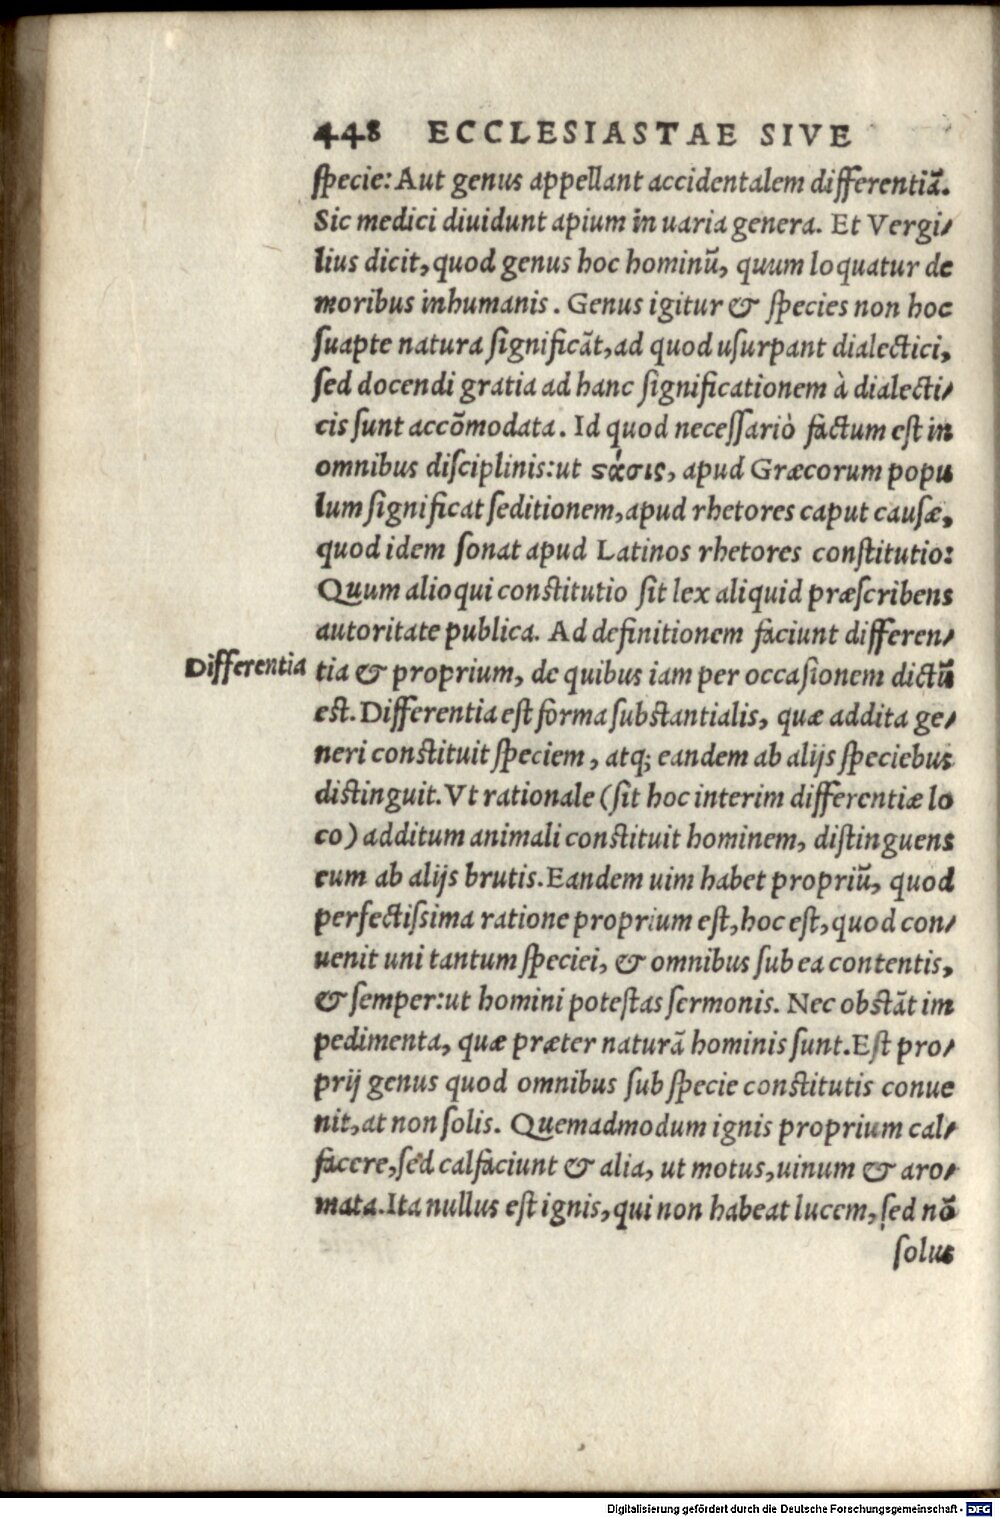 448 ECCLESIASTAE SIVE
ſpecie: Aut genus appellant accidentalem differentiã.
Sic medici diuidunt apium in uaria genera. Et Vergi/
lius dicit, quod genus hoc hominũ, quum loquatur de
moribus inhumanis. Genus igitur & ſpecies non hoc
ſuapte natura ſignificãt, ad quod uſurpant dialectici,
ſed docendi gratia ad hanc ſignificationem à dialecti/
cis ſunt accõmodata. Id quod neceſſariò factum eſt in
omnibus diſciplinis: ut ϛάσις, apud Græcorum popu
lum ſignificat ſeditionem, apud rhetores caput cauſæ,
quod idem ſonat apud Latinos rhetores conſtitutio:
Quum alioqui conſtitutio ſit lex aliquid præſcribens
autoritate publica. Ad definitionem faciunt differen/
Differentia tia & proprium, de quibus iam per occaſionem dictũ
eſt. Differentia eſt forma ſubſtantialis, quæ addita ge/
neri conſtituit ſpeciem, atq; eandem ab alijs ſpeciebus
diſtinguit. Vt rationale (ſit hoc interim differentiæ lo
co) additum animali conſtituit hominem, diſtinguens
eum ab alijs brutis. Eandem uim habet propriũ, quod
perfectiſsima ratione proprium eſt, hoc eſt, quod con/
uenit uni tantum ſpeciei, & omnibus ſub ea contentis,
& ſemper: ut homini poteſtas ſermonis. Nec obſtãt im
pedimenta, quæ præter naturã hominis ſunt. Eſt pro/
prij genus quod omnibus ſub ſpecie conſtitutis conue
nit, at non ſolis. Quemadmodum ignis proprium cal/
facere, ſed calfaciunt & alia, ut motus, uinum & aro/
mata. Ita nullus eſt ignis, qui non habeat lucem, ſed nõ
ſolus
Digitalisierung gefördert durch die Deutsche Forschungsgemeinschaft - DFG